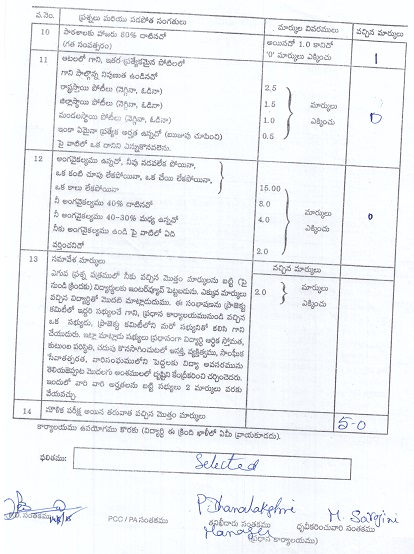 వ.నెం. ప్రశ్నలు మరియు వడపోత సంగతులు మార్కుల వివరములు వచ్చిన మార్కులు
10 పాఠశాలకు హాజరు 80% దాటినచో అయినచో 1.0 కానిచో 1
(గత సంవత్సరం) '0' మార్కులు ఎక్కించు
11 ఆటలలో గాని, ఇతర ప్రత్యేకమైన పోటీలలో
గాని పాల్గొన్న నిపుణత ఉండినచో
రాష్ట్రస్థాయి పోటీలు (నెగ్గినా, ఓడినా) 2.5
జిల్లాస్థాయి పోటీలు (నెగ్గినా, ఓడినా) 1.5 మార్కులు 0
మండలస్థాయి పోటీలు (నెగ్గినా, ఓడినా) 1.0 ఎక్కించు
ఇంకా ఏమైనా ప్రత్యేక అర్హత ఉన్నచో (ఋజువు చూపించి) 0.5
పై వాటిలో ఒక దానిని ఎన్నుకొనవలెను.
12 అంగవైకల్యము ఉన్నచో, నీవు నడవలేక పోయినా,
ఒక కంటి చూపు లేకపోయినా, ఒక చేయి లేకపోయినా,
ఒక కాలు లేకపోయినా 15.00
నీ అంగవైకల్యము 40% దాటినచో 8.0 మార్కులు 0
నీ అంగవైకల్యము 40-30% మధ్య ఉన్నచో 4.0 ఎక్కించు
నీకు అంగవైకల్యము ఉండి పై వాటిలో ఏది
వర్తించనిచో 2.0
13 సమావేశ మార్కులు వచ్చిన మార్కులు
ఎగువ ప్రశ్న పత్రములో నీకు వచ్చిన మొత్తం మార్కులను బట్టి (పై 2.0 మార్కులు
నుండి క్రిందకు) విద్యార్థులకు ఇంటర్వ్యూవ్ పెట్టబడును. ఎక్కువ మార్కులు ఎక్కించు
వచ్చిన విద్యార్థితో మొదట మాట్లాడుదుము. ఈ సంభాషణను ప్రాజెక్టు
కమిటీలో ఇద్దరి సభ్యులచే గాని, ప్రధాన కార్యాలయమునుండి వచ్చిన
ఒక సభ్యుడు, ప్రాజెక్టు కమిటీలోని మరో సభ్యునితో కలిసి గాని
చేయుదురు. ఇట్లా మాట్లాడు సభ్యులు ప్రధానంగా విద్యార్థి ఆర్థిక స్తోమత,
కుటుంబ పరిస్థితి, చదువు కొనసాగించుటలో ఆసక్తి, వ్యక్తిత్వము, సాంఘిక
సేవాతత్పరత, వారిసంఘములోని పెద్దలకు విద్యా అవసరమును
తెలియజెప్పుట మొదలగు అంశములలో దృష్టిని కేంద్రీకరించి చర్చించెదరు.
ఇందులో వారి వారి అర్హతలను బట్టి సభ్యులు 2 మార్కులు వరకు
వేయవచ్చు.
14 మౌళిక పరీక్ష అయిన తరువాత వచ్చిన మొత్తం మార్కులు 5-0
కార్యాలయము ఉపయోగము కొరకు (విద్యార్థి ఈ క్రింది ఖాళీలో ఏమీ వ్రాయకూడదు).
ఫలితము: Selected
P Dhanalakshmi M. Sarojini
సంతకము PCC / PA సంతకము తనిఖీదారు సంతకము ధృవీకరించువారి సంతకము
Manager (ప్రధాన కార్యాలయం)